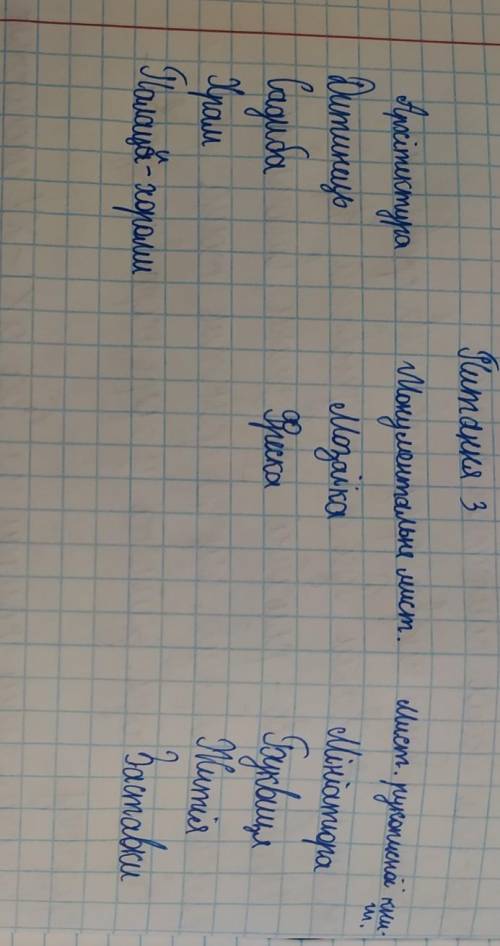 Питання 3
Архітектура Монументальне мист. Мист. рукописної кни-
ги.
Дитинець Мозаїка Мініатюра
Садиба Фреска Буквиця
Храм Житія
Палаци-хороми Заставки